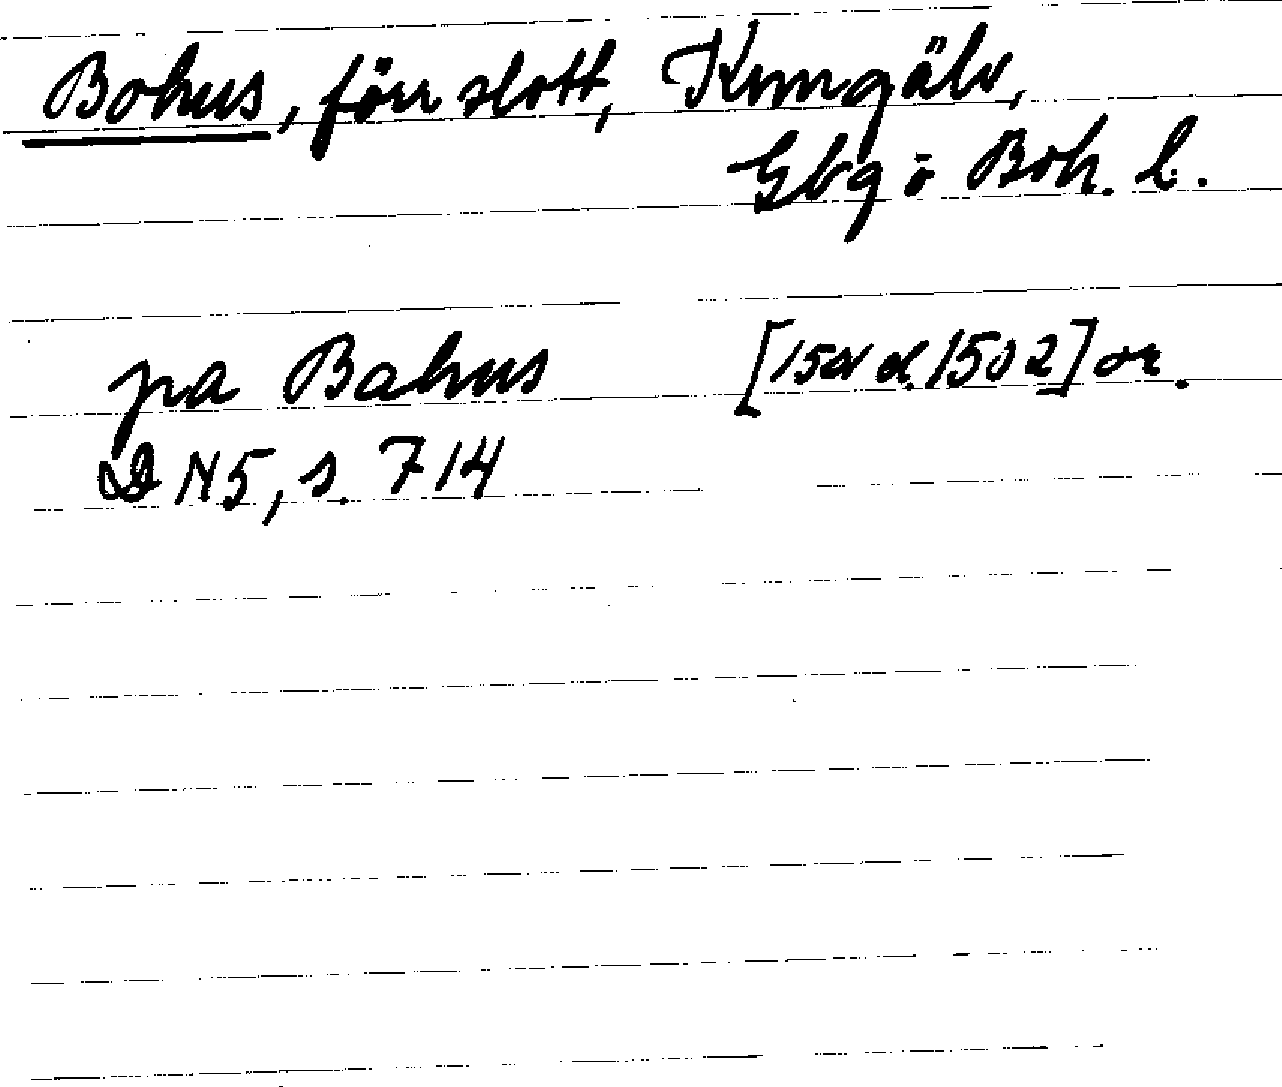 Bohus, förr slott, Kungälv,
Gbg o Boh. l.
pa Bahus [1501 el. 1502] or.
DN5, s. 714